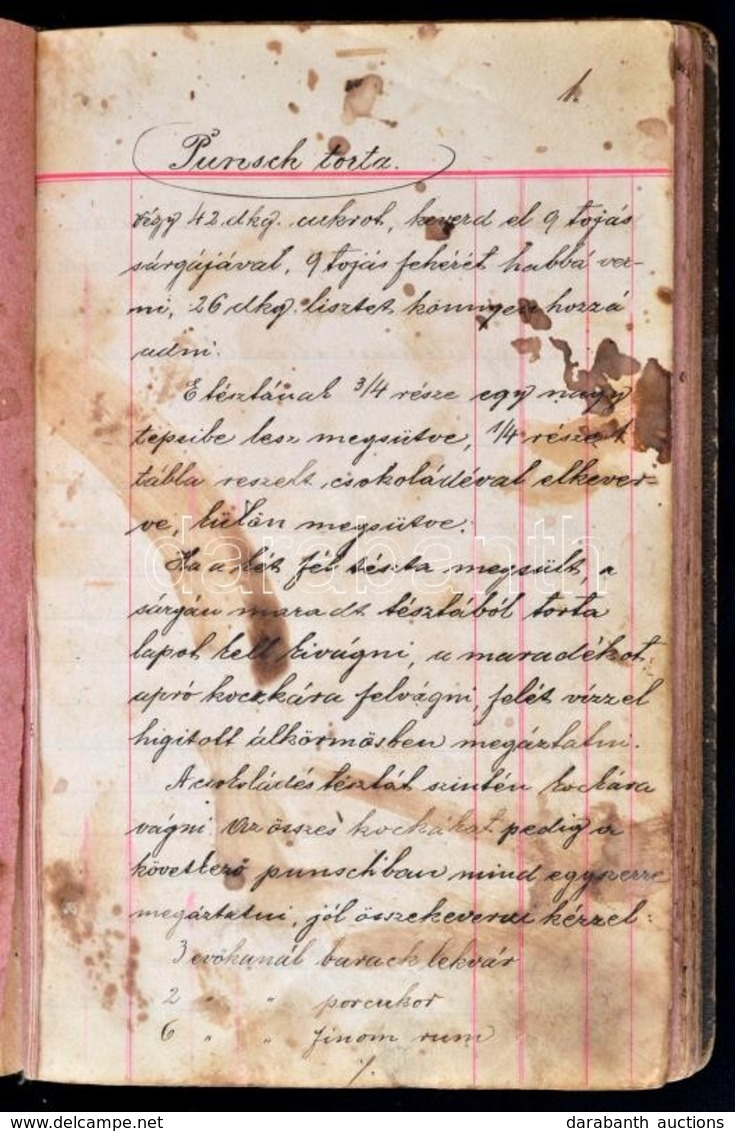 1.
Punsch torta.
végy 42 dkg. cukrot, keverd el 9 tojás
sárgájával, 9 tojás fehérét habbá ver-
ni, 26 dkg. lisztet könnyen hozzá
adni.
E tésztának 3/4 része egy nagy
tepsibe lesz megsütve, 1/4 részét
tábla reszelt csokoládéval elkever-
ve, külön megsütve.
Ha a két fél tészta megsült, a
sárgán maradt tésztából torta
lapot kell kivágni, a maradékot
apró kockára felvágni, felét vízzel
higitott álkörmösben megáztatni.
A csokoládés tésztát szintén kockára
vágni. Az összes kockákat pedig a
következő punschban mind egyszerre
megáztatni, jól összekeverni kézzel:
3 evőkanál barack lekvár
2 " " porcukor
6 " " finom rum
·/.
darabanth
darabanth auctions